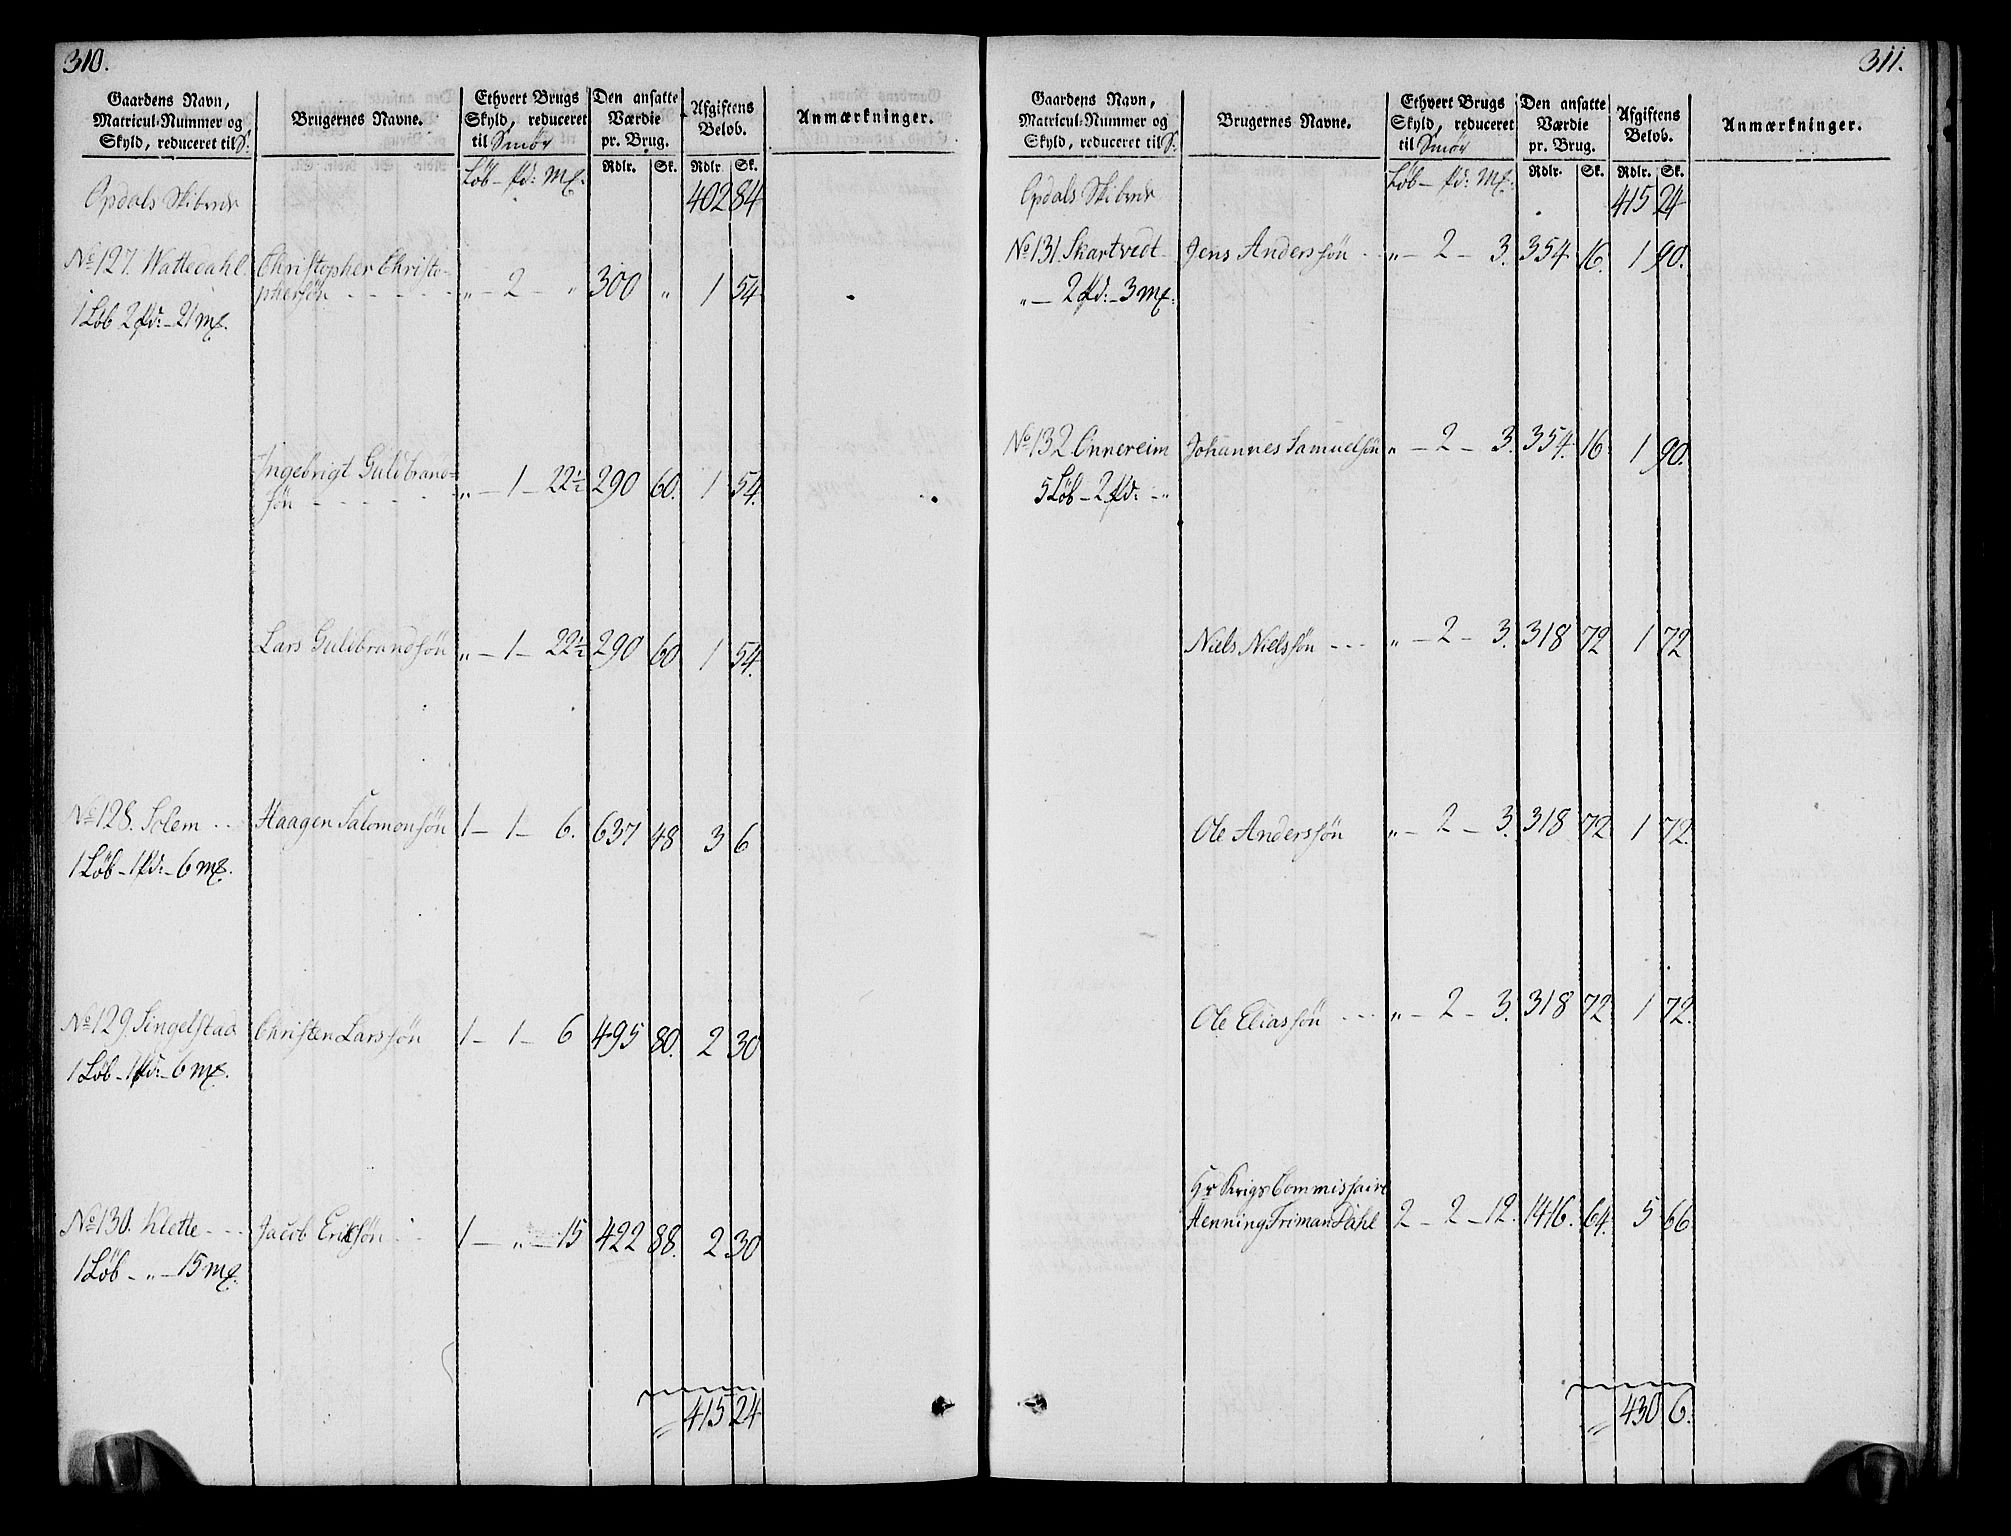 310.
Gaardens Navn, Matricul-Nummer og Skyld, reduceret til S.
Brugernes Navne.
Ethvert Brugs Skyld, reduceret til Smör
Den ansatte Værdie pr. Brug.
Afgiftens Beløb.
Anmærkninger.
Løb - Pd: Mk. Rdlr. Sk. Rdlr. Sk.
Opdals Skibrede 402 84
No 127. Wattedahl Christopher Christo-
phersön - - - - - „ - 2 - „ 300 „ 1 54
1 Löb 2 Pd: - 21 Mk.
Ingebrigt Guldbrand=
sön - - - - - „ - 1 - 22½ 290 60. 1 54.
Lars Guldbrandsön „ - 1 - 22½ 290 60 1 54.
No 128. Solem - - Haagen Salomonsön 1 - 1 - 6. 637 48 3 6
1 Löb - 1 Pd: - 6 Mk.
No 129. Singelstad Christen Larssön 1 - 1 - 6 495 80. 2 30
1 Löb - 1 Pd: - 6 Mk.
No 130. Klette - - - Jacob Eriksön - - 1 - „ - 15 422 88. 2 30
1 Löb - „ - 15 Mk.
415 24
311.
Gaardens Navn, Matricul-Nummer og Skyld, reduceret til S.
Brugernes Navne.
Ethvert Brugs Skyld, reduceret til Smör
Den ansatte Værdie pr. Brug.
Afgiftens Beløb.
Anmærkninger.
Løb - Pd: Mk. Rdlr. Sk. Rdlr. Sk.
Opdals Skibrede 415 24
No 131. Skartvedt Jens Anderssön - - „ - 2 - 3. 354 16. 1 90.
„ - 2 Pd: - 3 Mk.
No 132 Ennereim Johannes Samuelsön „ - 2 - 3. 354. 16 1 90.
5 Löb - 2 Pd: - „
Niels Nielssön - - - „ - 2 - 3. 318 72 1 72
Ole Anderssön „ - 2 - 3. 318 72 1 72.
Ole Eliassön - - - „ - 2 - 3. 318 72 1 72.
Hr Krigs Commissaire
Henning Friman Dahl 2 - 2 - 12. 1416. 64. 5 66
430 6.